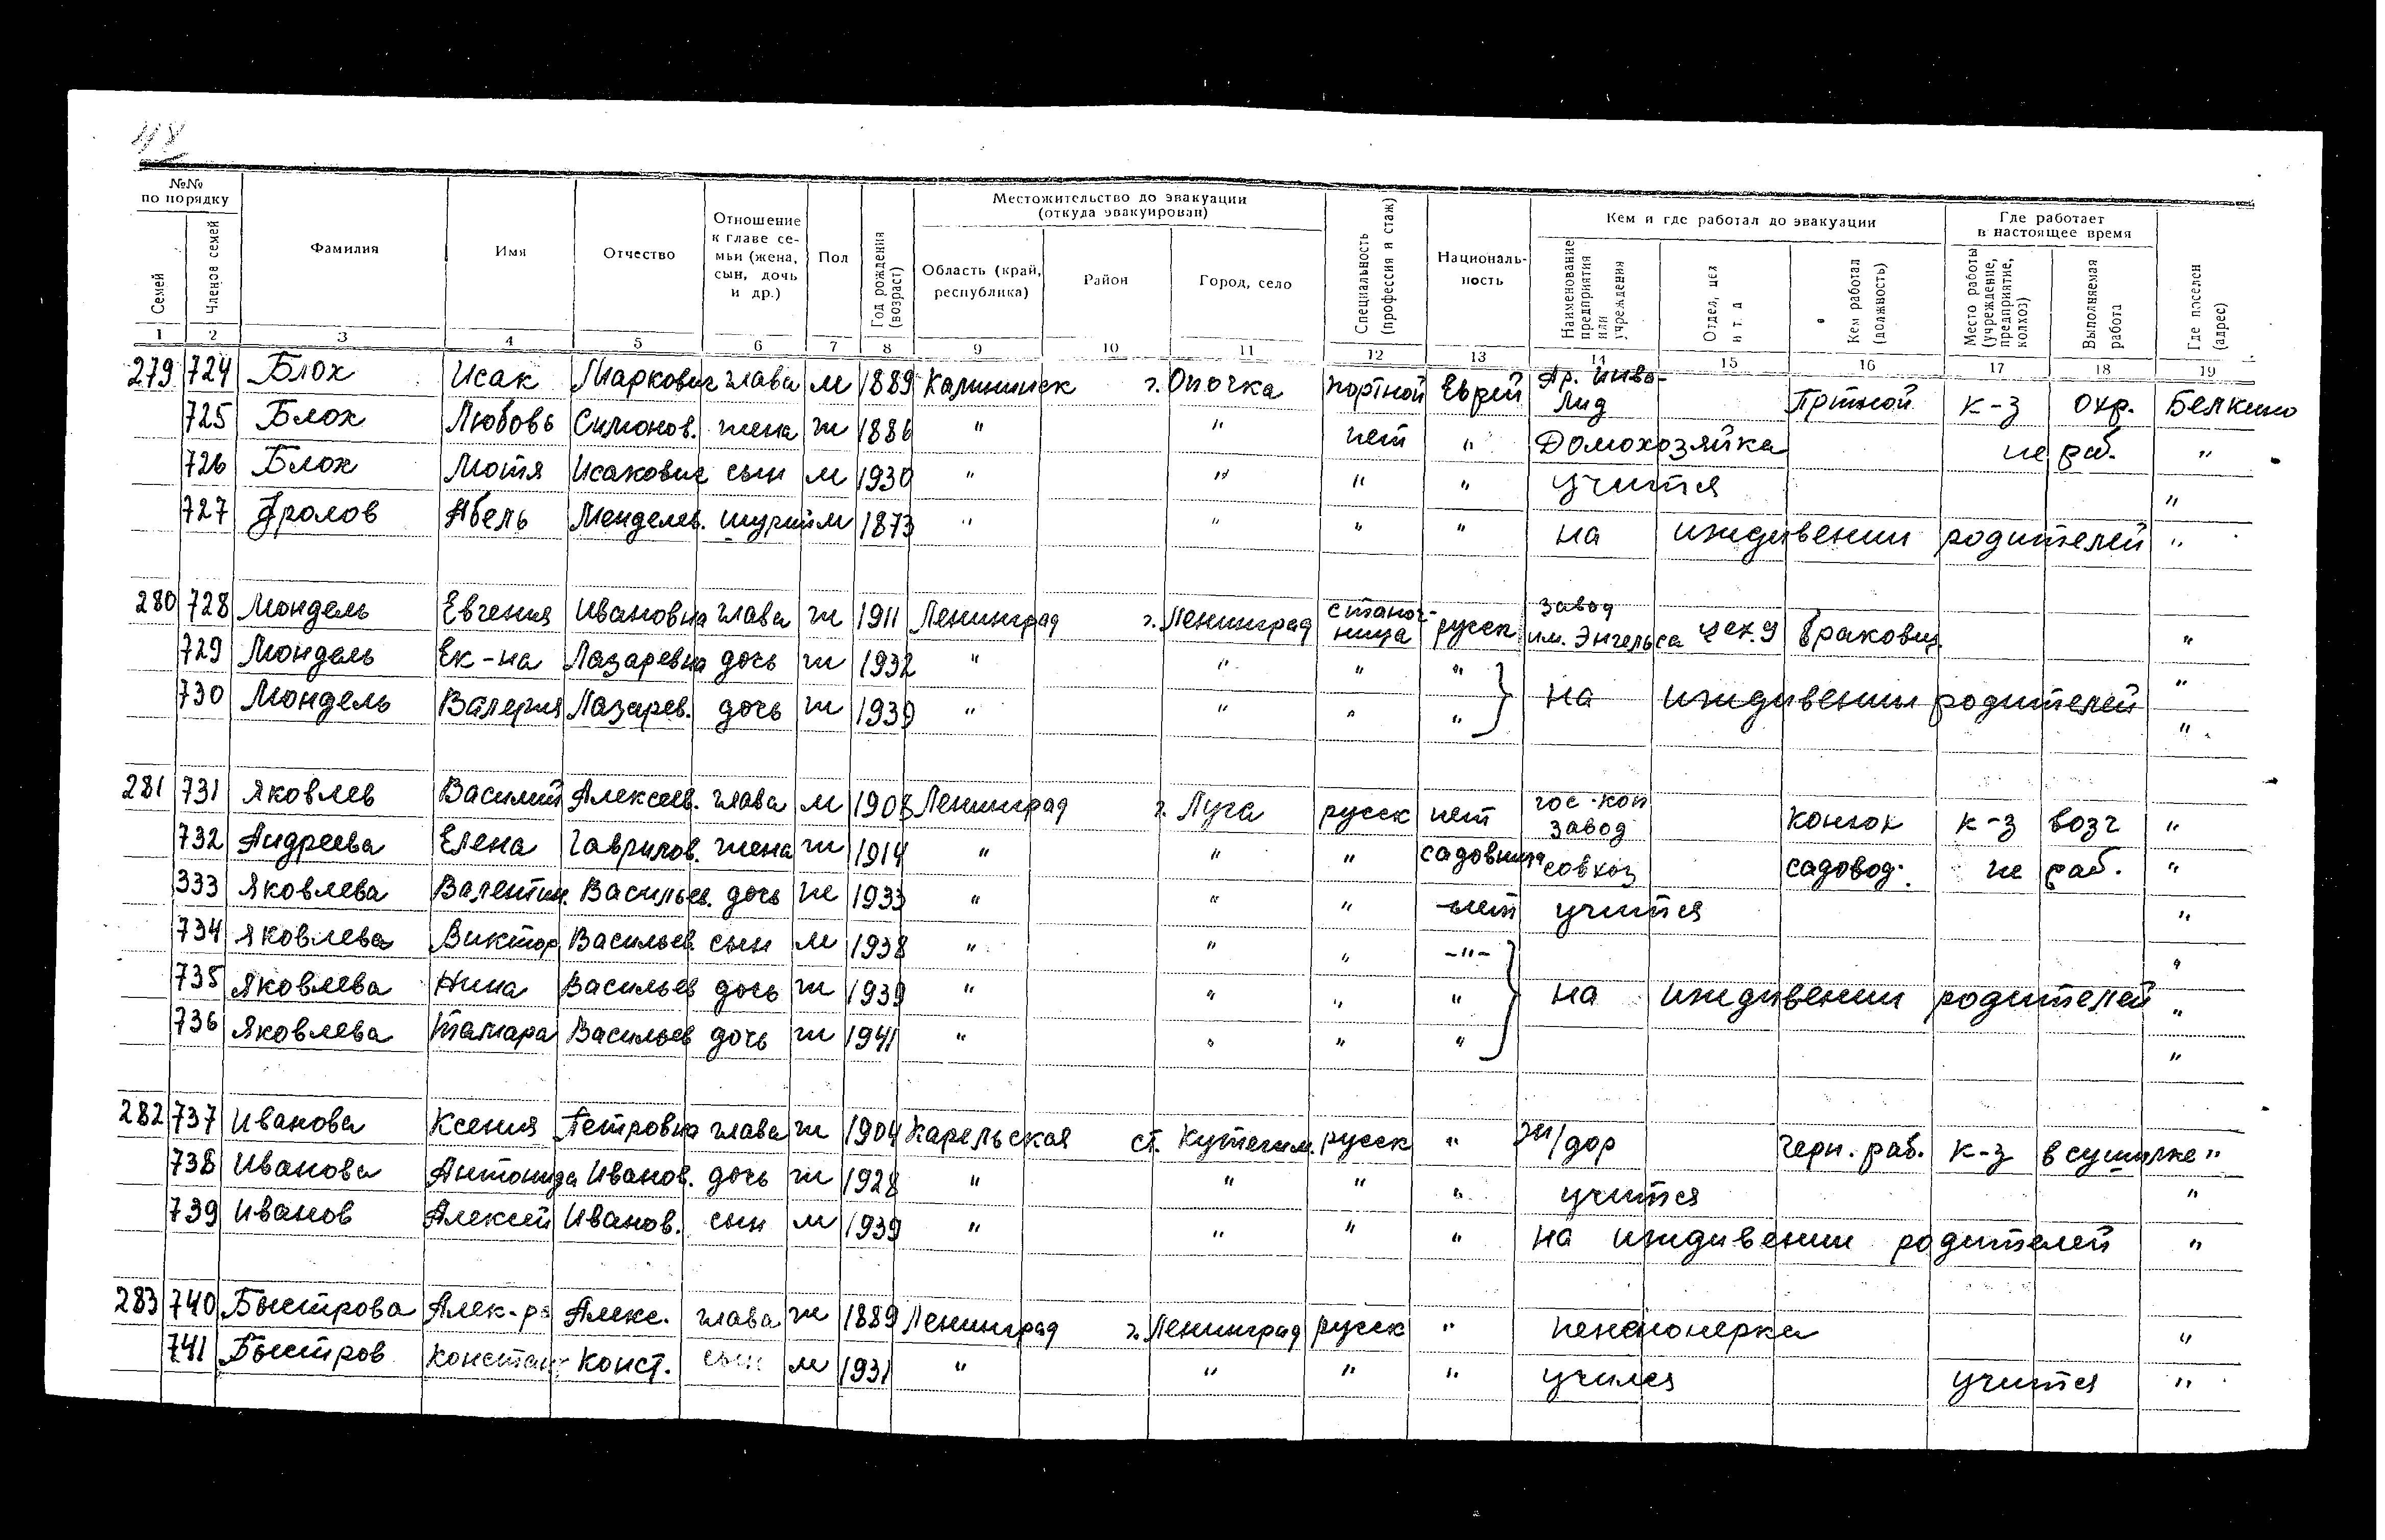 48
№№ по порядку
Семей
Членов семей
Фамилия
Имя
Отчество
Отношение к главе се-
мьи (жена, сын, дочь и др.)
Пол
Год рождения (возраст)
Местожительство до эвакуации
(откуда эвакуирован)
Область (край, республика)
Район
Город, село
Специальность (профессия и стаж)
Националь-
ность
Кем и где работал до эвакуации
Наименование предприятия или учреждения
Отдел, цех и т. д
Кем работал (должность)
Где работает
в настоящее время
Место работы (учреждение, предприятие, колхоз)
Выполняемая работа
Где поселен (адрес)
1 2 3 4 5 6 7 8 9 10 11 12 13 14 15 16 17 18 19
279 724 Блох Исак Маркович глава м 1889 Калининск г. Опочка портной Еврей Ар. инва-
лид Пртной к-з охр. Белкино
725 Блох Любовь Симонов. жена ж 1886 " " нет " Домохозяйка не раб. "
726 Блох Мотя Исакович сын м 1930 " " " " учится "
727 Фролов Абель Менделев. шурин м 1873 " " " " на иждивении родителей "
280 728 Мондель Евгения Ивановна глава ж 1911 Ленинград г. Ленинград станоч-
ница русск завод
им. Энгельса цех 9 браковщ. "
729 Мондель Ек-на Лазаревна дочь ж 1932 " " " " "
730 Мондель Валерия Лазарев. дочь ж 1939 " " " " } на иждивении родителей "
281 731 Яковлев Василий Алексеев. глава м 1908 Ленинград г. Луга русск нет гос. кон
завод конюх к-з возч "
732 Андреева Елена Гаврилов. жена ж 1914 " " " садовница совхоз садовод. не раб. "
333 Яковлева Валентин. Васильев. дочь ж 1933 " " " нет учится "
734 Яковлева Виктор Васильев. сын м 1938 " " " -"- "
735 Яковлева Нина Васильев дочь ж 1939 " " " " } на иждивении родителей "
736 Яковлева Тамара Васильев дочь ж 1941 " " " " "
282 737 Иванова Ксения Петровна глава ж 1904 Карельская ст. русск " ж/дор черн. раб. к-з в сушилке "
738 Иванова Антонида Иванов. дочь ж 1928 " " " " учится "
739 Иванов Алексей Иванов. сын м 1939 " " " " на иждивении родителей "
283 740 Быстрова Алек-ра Алекс. глава ж 1889 Ленинград г. Ленинград русск " пенсионерка "
741 Быстров Констан Конст. сын м 1931 " " " " учился учится "